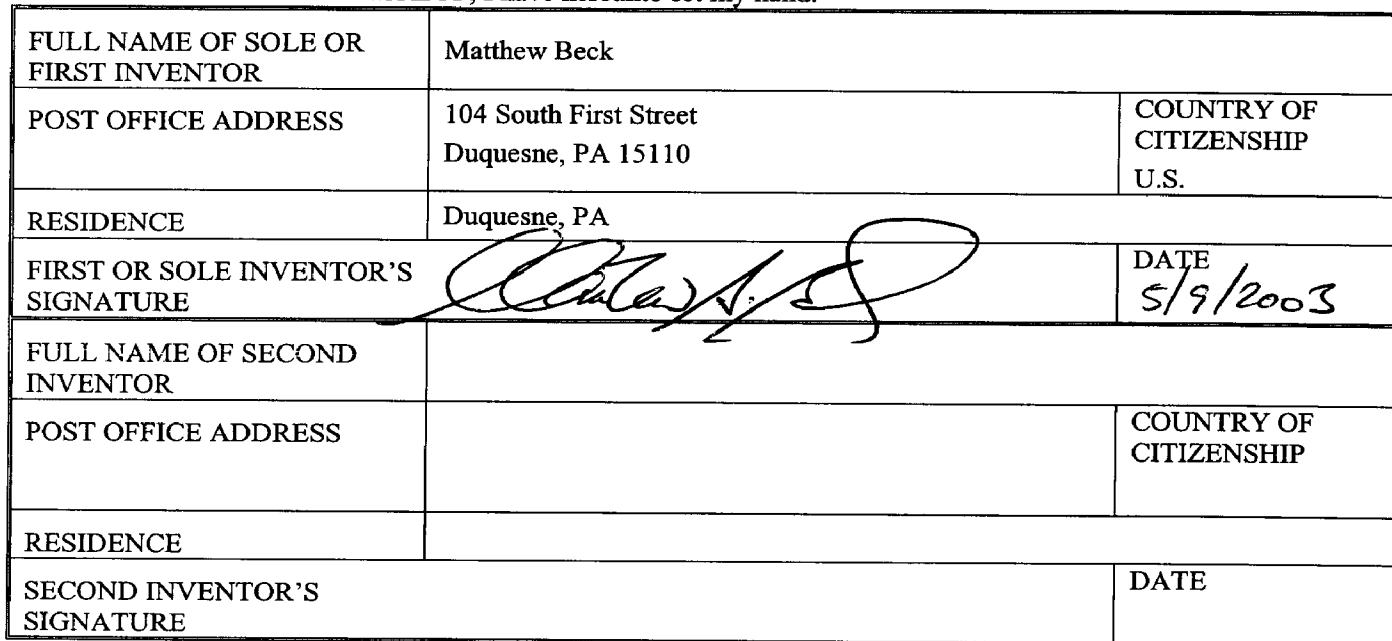 I have hereunto set my hand.
FULL NAME OF SOLE OR
FIRST INVENTOR
Matthew Beck
POST OFFICE ADDRESS
104 South First Street
Duquesne, PA 15110
COUNTRY OF
CITIZENSHIP
U.S.
RESIDENCE
Duquesne, PA
FIRST OR SOLE INVENTOR'S
SIGNATURE
DATE
5/9/2003
FULL NAME OF SECOND
INVENTOR
POST OFFICE ADDRESS
COUNTRY OF
CITIZENSHIP
RESIDENCE
SECOND INVENTOR'S
SIGNATURE
DATE